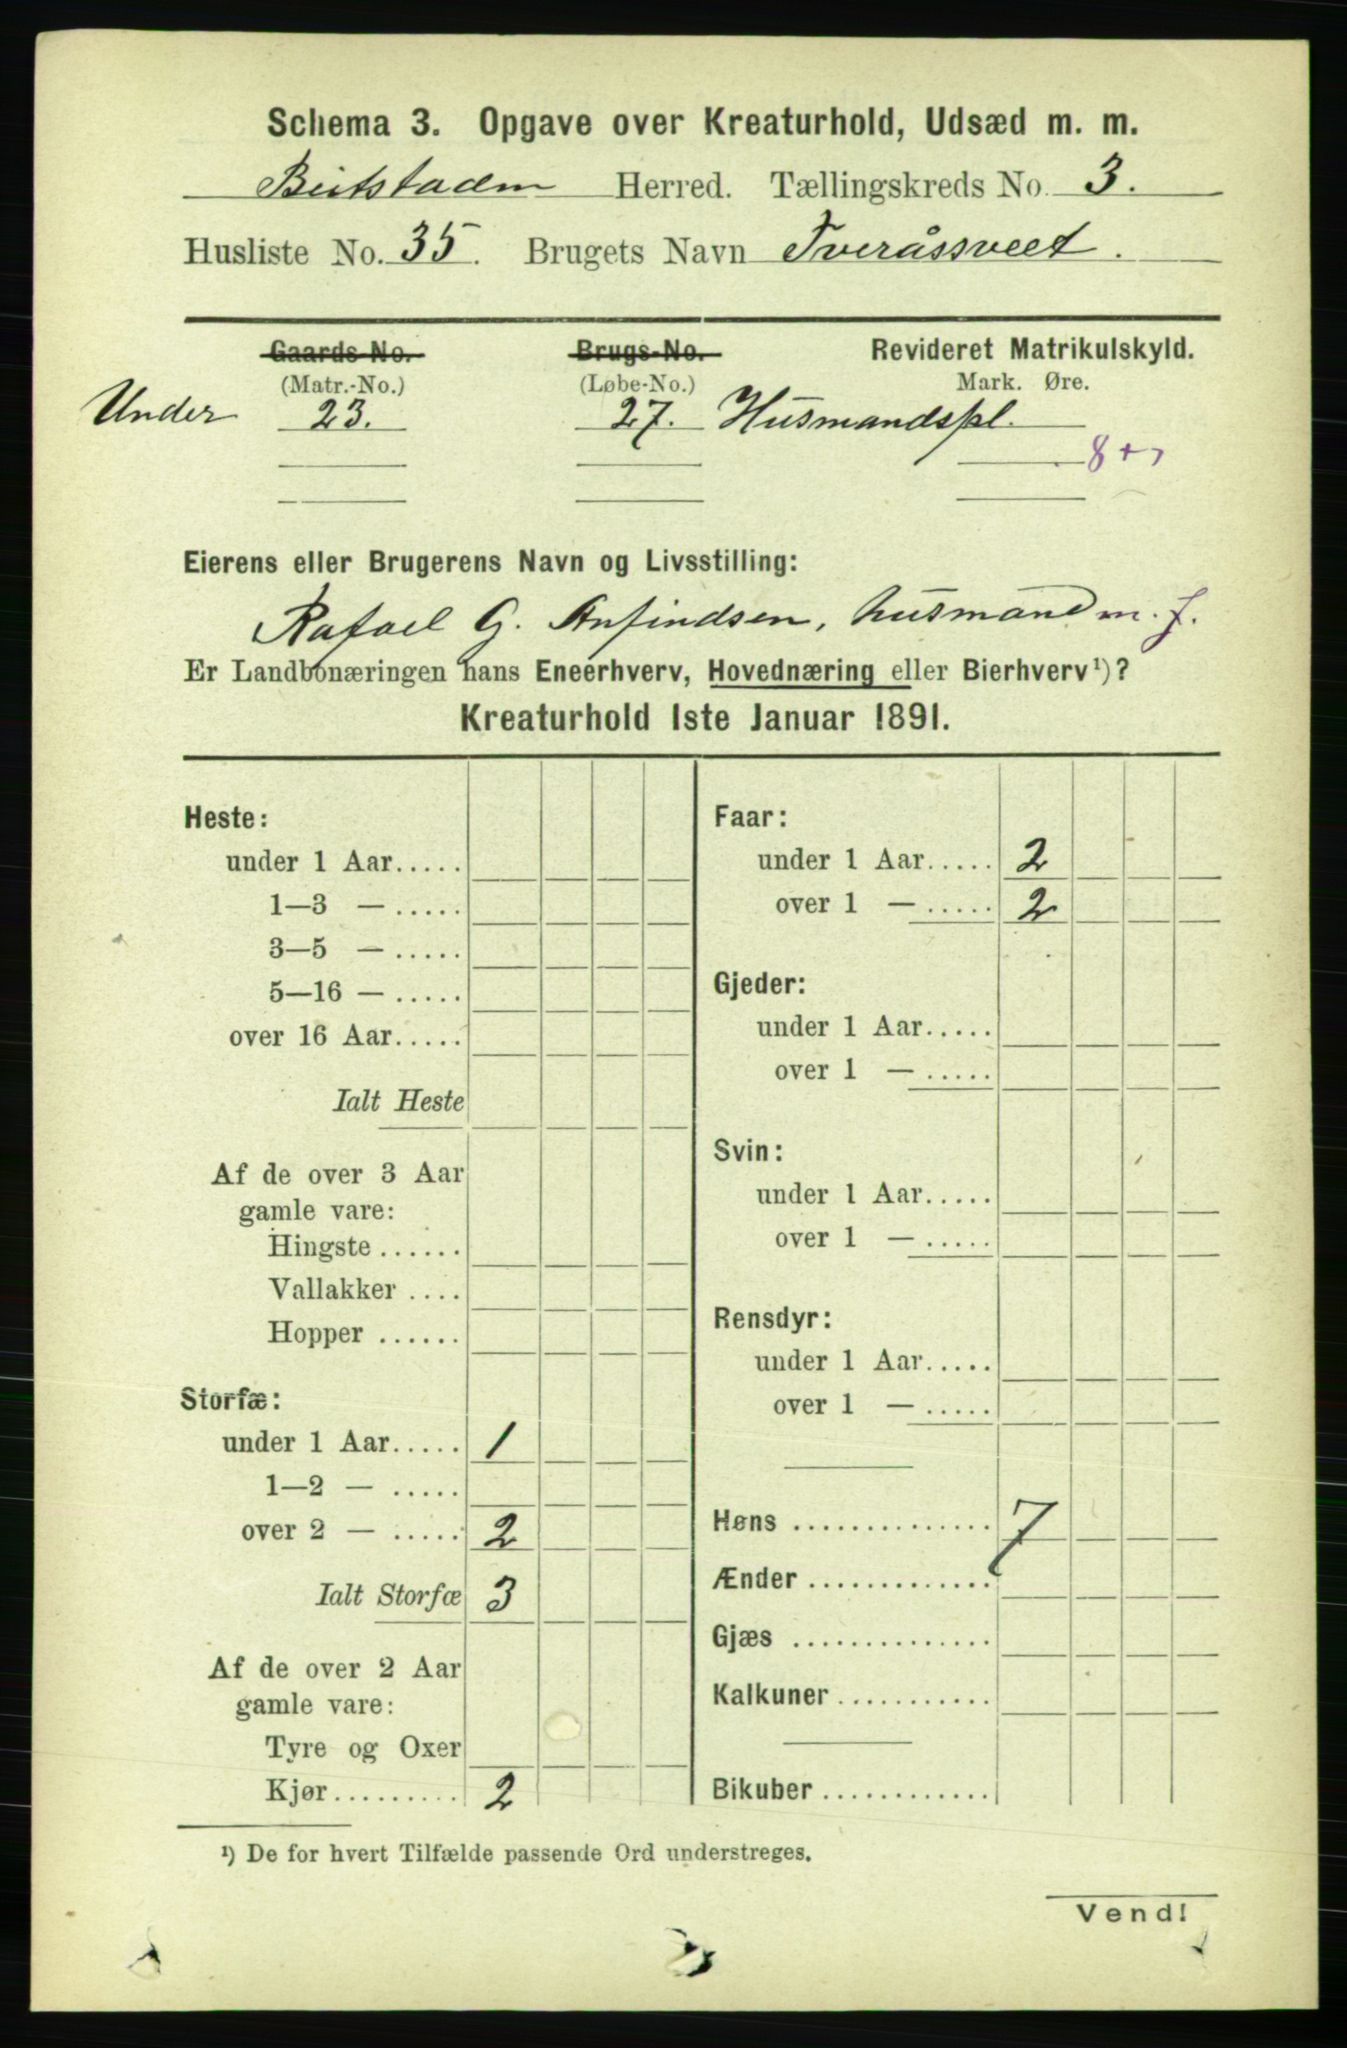 Schema 3. Opgave over Kreaturhold, Udsæd m. m.
Beitstaden Herred. Tællingskreds No. 3.
Husliste No. 35. Brugets Navn Tveråssveet.
Gaards-No. Brugs-No. Revideret Matrikulskyld.
(Matr.-No.) (Løbe-No.) Mark. Øre.
Under 23. 27. Husmandspl.
Eierens eller Brugerens Navn og Livsstilling:
Rafael G. Anfindsen, husmand m. j.
Er Landbonæringen hans Eneerhverv, Hovednæring eller Bierhverv¹)?
Kreaturhold 1ste Januar 1891.
Heste:
under 1 Aar.....
1—3 — .....
3—5 — .....
5—16 — .....
over 16 Aar.....
Ialt Heste
Af de over 3 Aar
gamle vare:
Hingste ......
Vallakker ....
Hopper ......
Storfæ:
under 1 Aar..... 1
1—2 — .....
over 2 — ..... 2
Ialt Storfæ 3
Af de over 2 Aar
gamle vare:
Tyre og Oxer
Kjør......... 2
Faar:
under 1 Aar..... 2
over 1 — ..... 2
Gjeder:
under 1 Aar.....
over 1 — .....
Svin:
under 1 Aar.....
over 1 — .....
Rensdyr:
under 1 Aar.....
over 1 — .....
Høns .............. 7
Ænder .............
Gjæs ..............
Kalkuner...........
Bikuber ............
¹) De for hvert Tilfælde passende Ord understreges.
Vend!